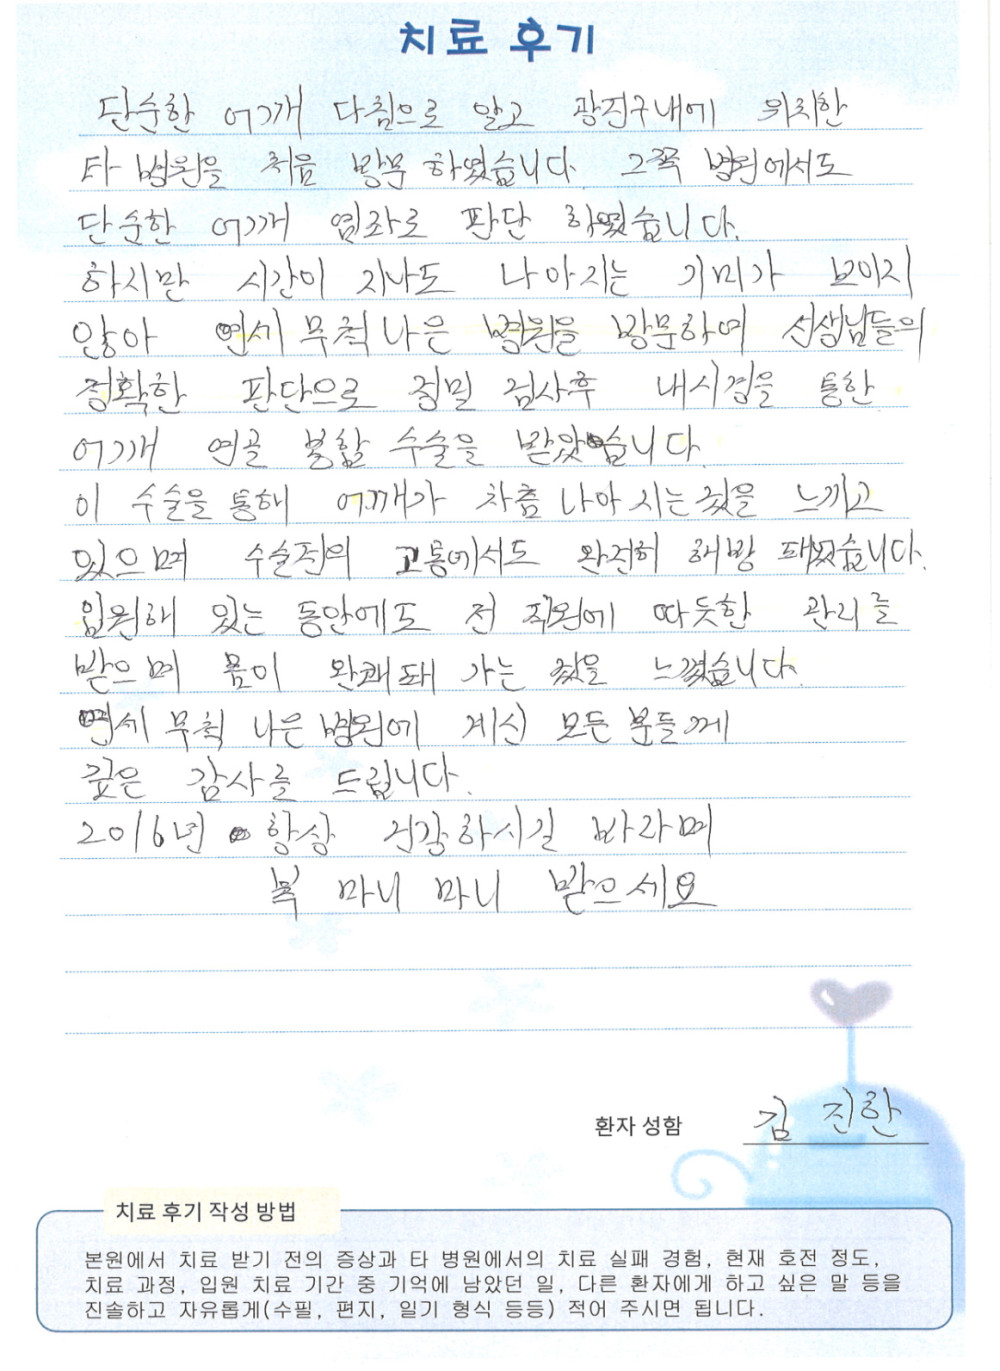 치료 후기
단순한 어깨 다침으로 알고 광진구내에 위치한
타 병원을 처음 방문 하였습니다 그쪽 병원에서도
단순한 어깨 염좌로 판단 하였습니다.
하지만 시간이 지나도 나아지는 기미가 보이지
않아 연세 무척 나은 병원을 방문하여 선생님들의
정확한 판단으로 정밀 검사후 내시경을 통한
어깨 연골 봉합 수술을 받았습니다.
이 수술을 통해 어깨가 차츰 나아 지는 것을 느끼고
있으며 수술전의 고통에서도 완전히 해방 돼었습니다.
입원해 있는 동안에도 전 직원에 따듯한 관리를
받으며 몸이 완쾌돼 가는 것을 느꼈습니다.
연세 무척 나은 병원에 계신 모든 분들께
깊은 감사를 드립니다.
2016년 항상 건강하시길 바라며
복 마니 마니 받으세요
환자 성함 김 진한
치료 후기 작성 방법
본원에서 치료 받기 전의 증상과 타 병원에서의 치료 실패 경험, 현재 호전 정도,
치료 과정, 입원 치료 기간 중 기억에 남았던 일, 다른 환자에게 하고 싶은 말 등을
진솔하고 자유롭게(수필, 편지, 일기 형식 등등) 적어 주시면 됩니다.